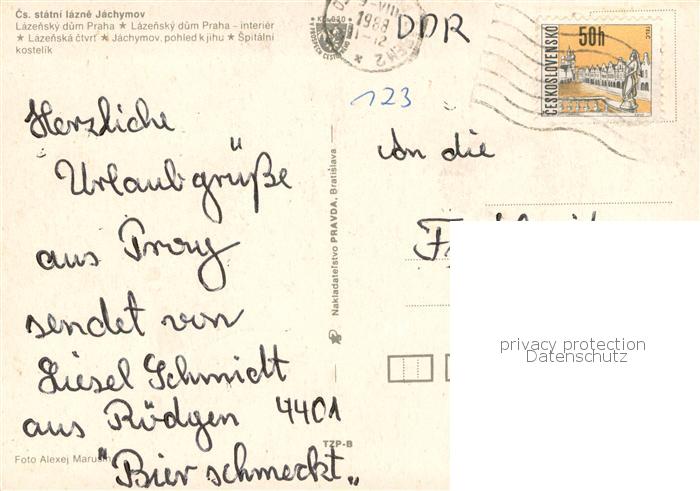 Čs. státní lázně Jáchymov
Lázeňský dům Praha ★ Lázeňský dům Praha – interiér
★ Lázeňská čtvrť ★ Jáchymov, pohled k jihu ★ Špitální
kostelík
1988
DDR
ČESKOSLOVENSKO
50h
TELČ
123
Herzliche
Urlaubgrüße
aus Prag
sendet von
Liesel Schmidt
aus Rödgen 4401
"Bier schmeckt„
An die
Nakladateľstvo PRAVDA, Bratislava
TZP-B
Foto Alexej Marušin
privacy protection
Datenschutz